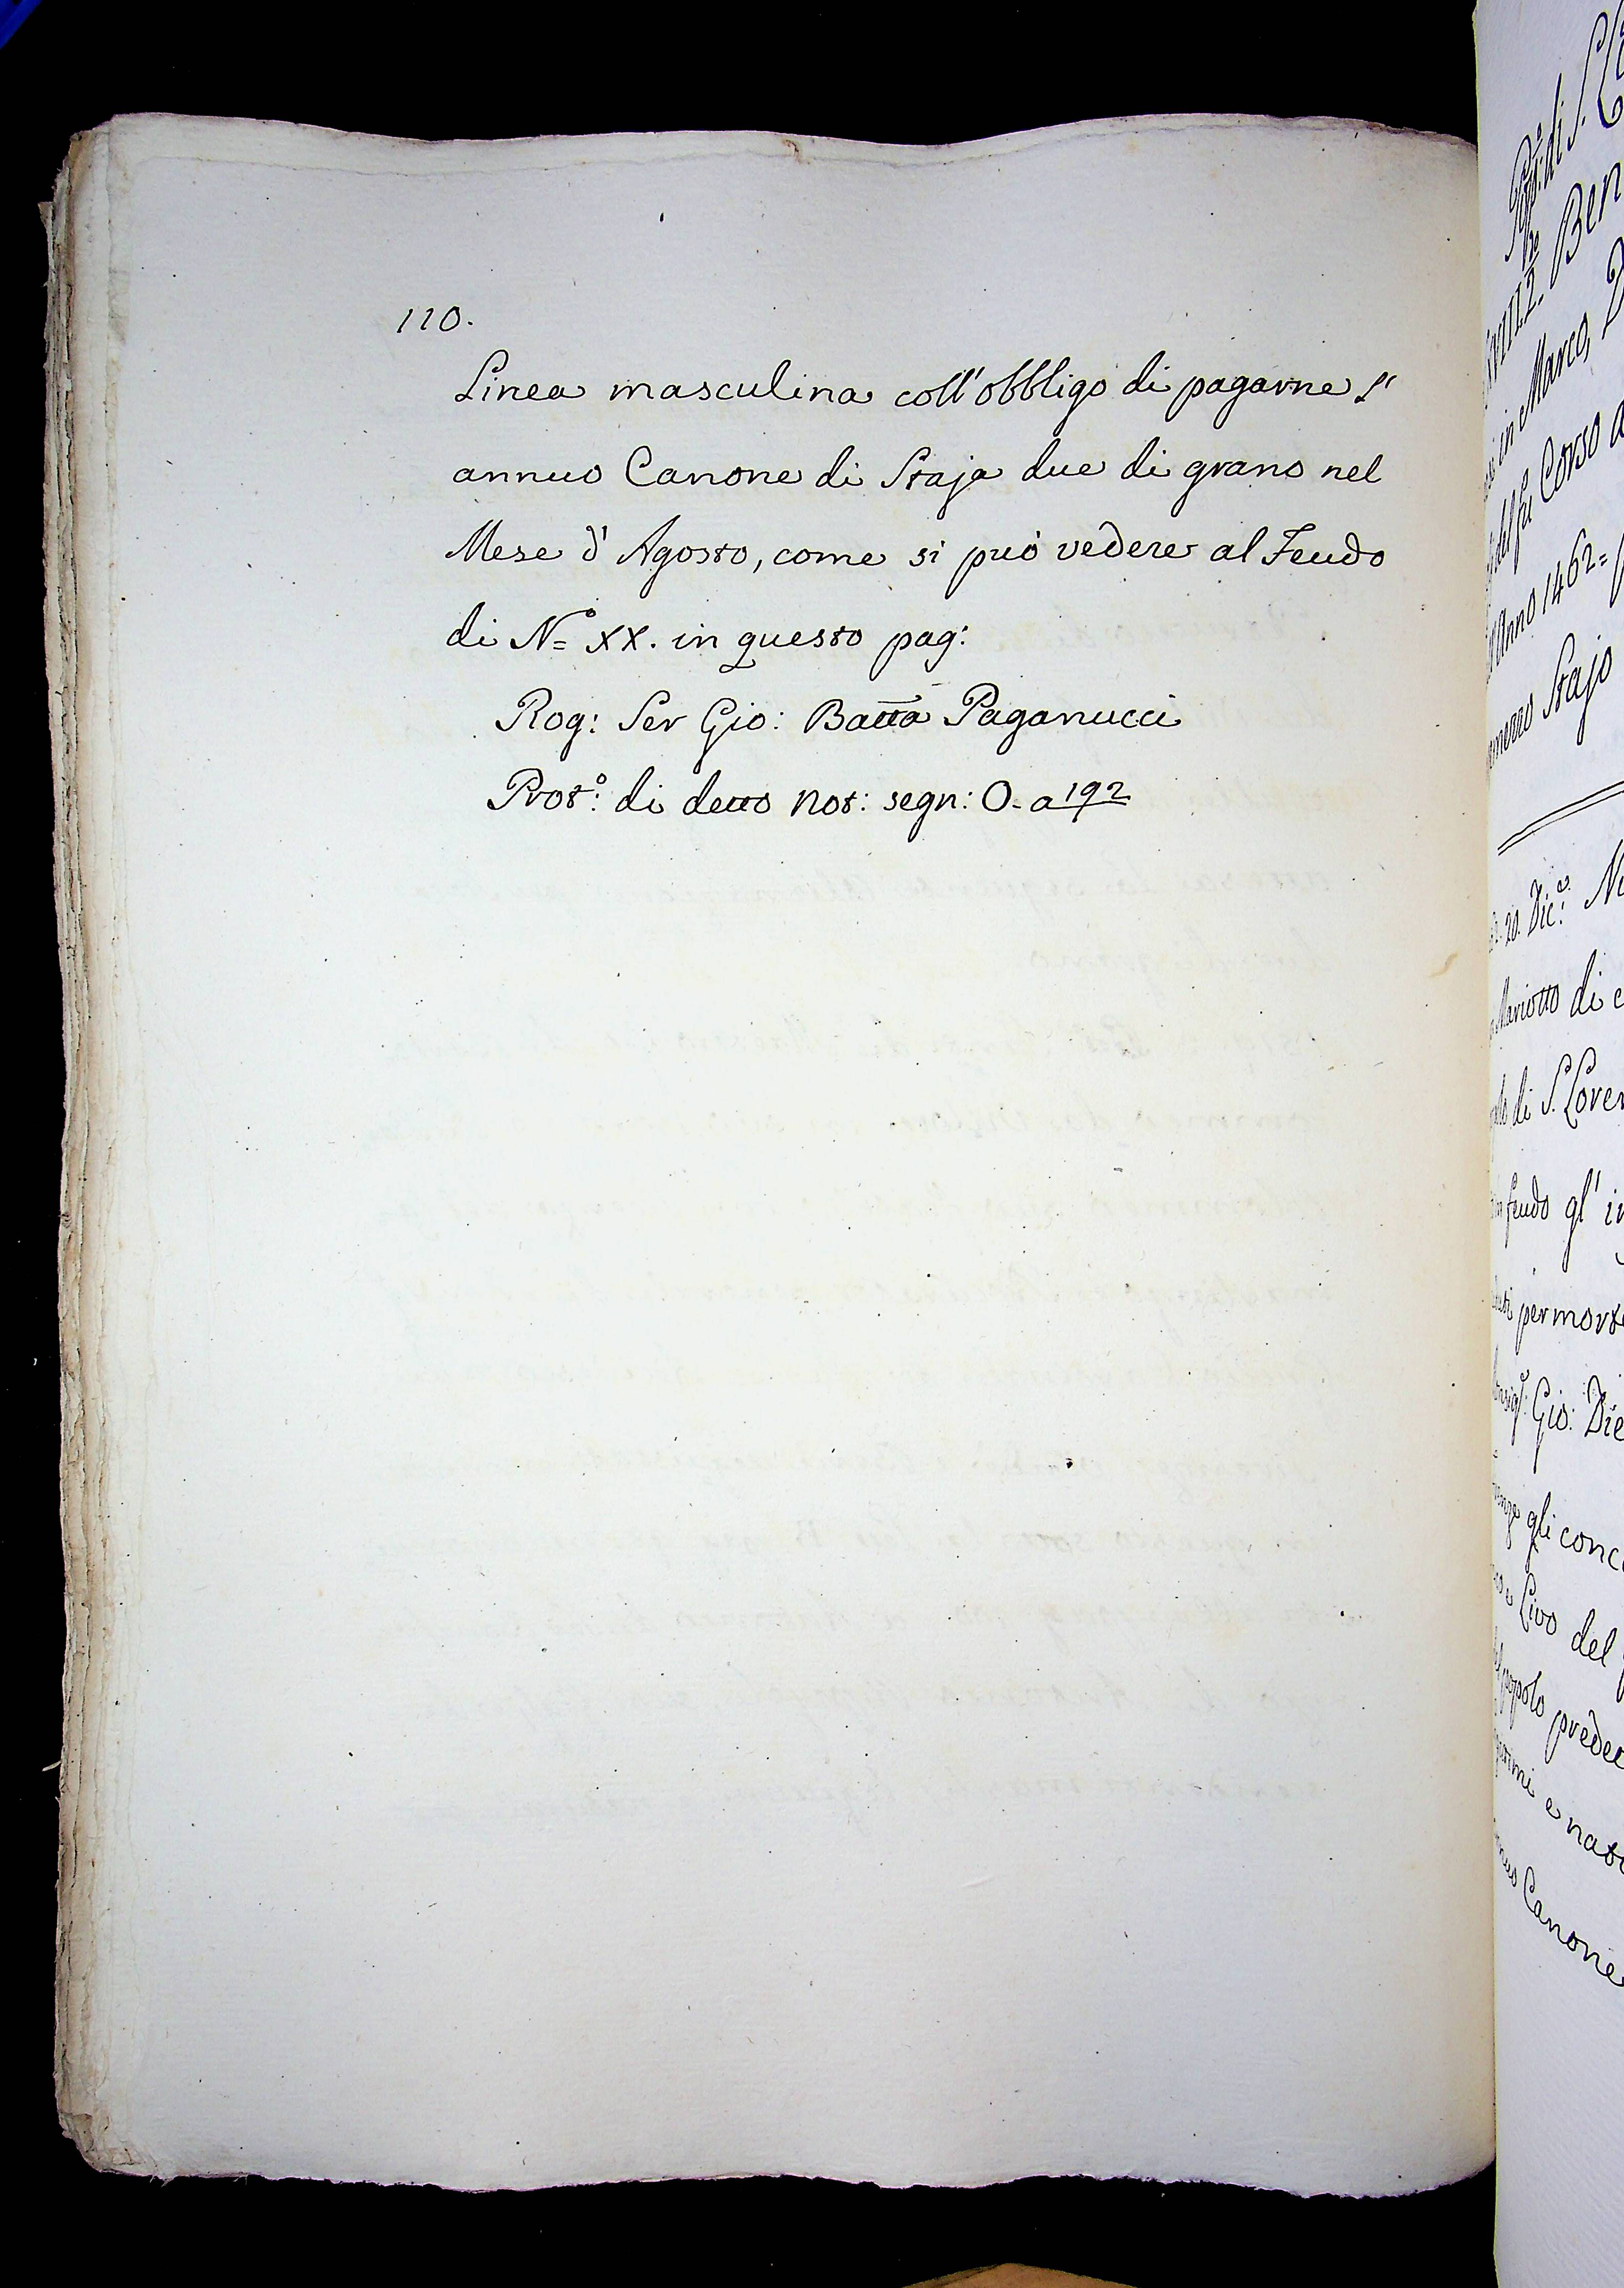 110.
Linea masculina coll'obbligo di pagarne l'
annuo Canone di Staja due di grano nel
Mese d'Agosto, come si può vedere al Feudo
di Nº XX. in questo pag:
Rog: Ser Gio: Batta Paganucci
Protº: di detto Not: segn: O. a 192
di S.
Ben
in Marco,
del fu Corso
Anno 1462=
Stajo
20. Dic.e
Mariotto di
di S. Loren
feudo gl'
per morte
Gio: Die
gli conc
Livo del
popolo predet
e nat
Canone